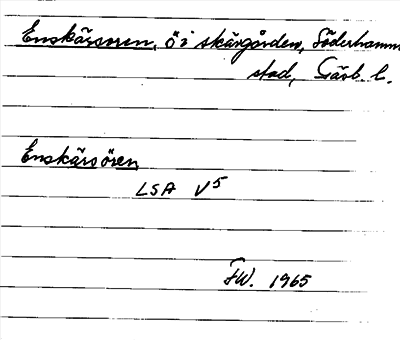 Enskärsoren, ö i skärgården, Söderhamns
stad, Gävb. l.
Enskärsören
LSA V5
FW. 1965